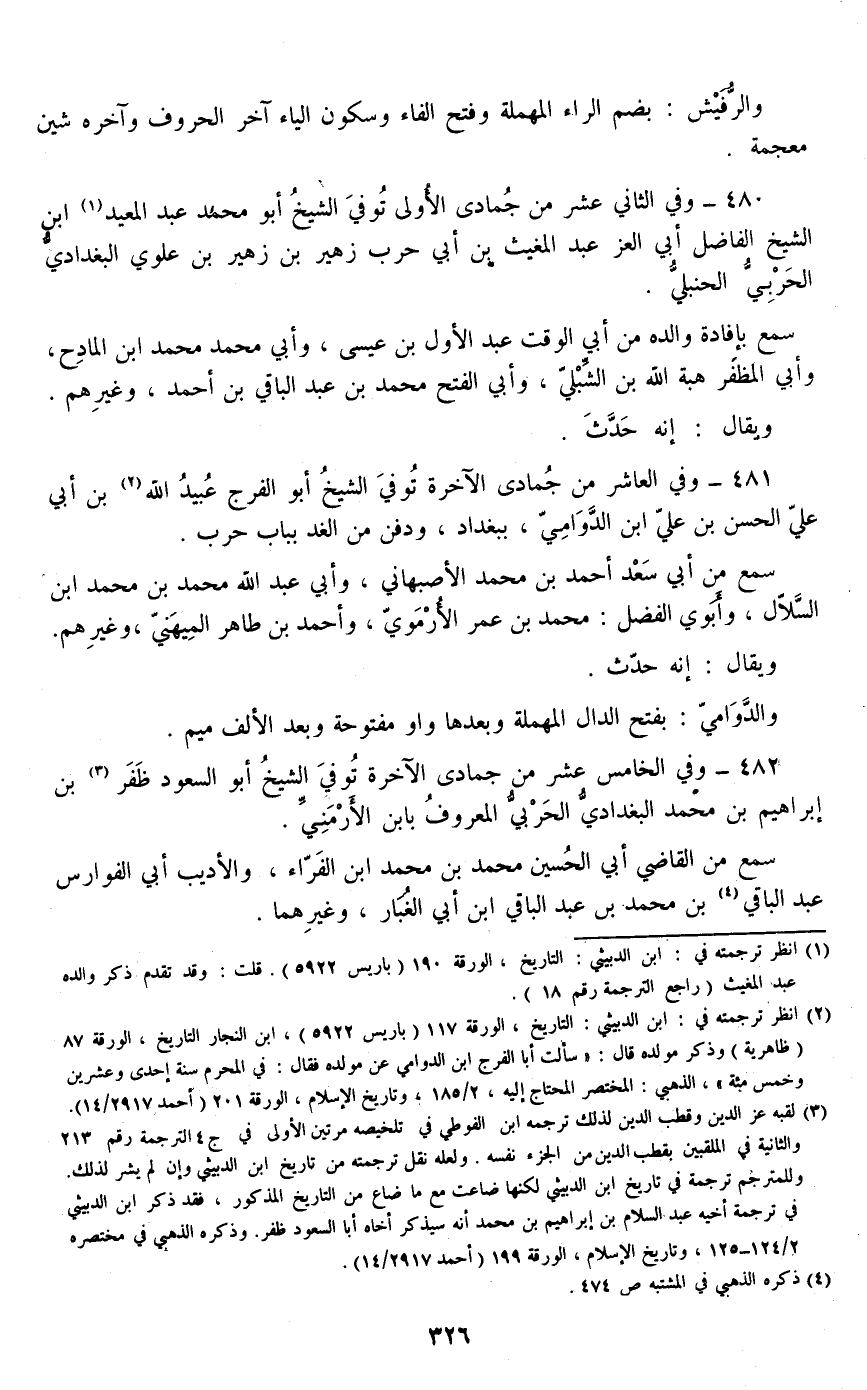 والرُّفَيْش : بضم الراء المهملة وفتح الفاء وسكون الياء آخر الحروف وآخره شين
معجمة .
٤٨٠ – وفي الثاني عشر من جُمادى الأُولى تُوفيَ الشيخُ أبو محمد عبد المعيد(١) ابن
الشيخ الفاضل أبي العز عبد المغيث بن أبي حرب زهير بن زهير بن علوي البغداديُّ
الحَرْبِيُّ الحنبليُّ .
سمع بإفادة والده من أبي الوقت عبد الأول بن عيسى ، وأبي محمد محمد ابن المادِح،
وأبي المظفر هبة الله بن الشِّبْليّ ، وأبي الفتح محمد بن عبد الباقي بن أحمد ، وغيرِهم .
ويقال : إنه حَدَّثَ .
٤٨١ – وفي العاشر من جُمادى الآخرة تُوفيَ الشيخُ أبو الفرج عُبيدُ الله(٢) بن أبي
عليّ الحسن بن عليّ ابن الدَّوَامِيّ ، ببغداد ، ودفن من الغد بباب حرب .
سمع من أبي سَعْد أحمد بن محمد الأصبهاني ، وأبي عبد الله محمد بن محمد ابن
السَّلاّل ، وأَبَوي الفضل : محمد بن عمر الأُرْمَويّ ، وأحمد بن طاهر المِيهَنيّ ،وغيرِهم.
ويقال : إنه حدّث .
والدَّوَاميّ : بفتح الدال المهملة وبعدها واو مفتوحة وبعد الألف ميم .
٤٨٢ – وفي الخامس عشر من جمادى الآخرة تُوفيَ الشيخُ أبو السعود ظَفَر (٣) بن
إبراهيم بن محمد البغداديُّ الحَرْبيُّ المعروفُ بابن الأَرْمَنِيِّ .
سمع من القاضي أبي الحُسين محمد بن محمد ابن الفَرّاء ، والأديب أبي الفوارس
عبد الباقي(٤) بن محمد بن عبد الباقي ابن أبي الغُبَار ، وغيرِهما .
(١) انظر ترجمته في : ابن الدبيثي : التاريخ ، الورقة ١٩٠ (باريس ٥٩٢٢) . قلت : وقد تقدم ذكر والده
عبد المغيث ( راجع الترجمة رقم ١٨ ) .
(٢) انظر ترجمته في : ابن الدبيثي : التاريخ ، الورقة ١١٧ ( باريس ٥٩٢٢ ) ، ابن النجار التاريخ ، الورقة ٨٧
( ظاهرية ) وذكر مولده قال : « سألت أبا الفرج ابن الدوامي عن مولده فقال : في المحرم سنة إحدى وعشرين
وخمس مئة » ، الذهبي : المختصر المحتاج إليه ، ١٨٥/٢ ، وتاريخ الإسلام ، الورقة ٢٠١ ( أحمد ١٤/٢٩١٧).
(٣) لقبه عز الدين وقطب الدين لذلك ترجمه ابن الفوطي في تلخيصه مرتين الأولى في ج٤ الترجمة رقم ٢١٣
والثانية في الملقبين بقطب الدين من الجزء نفسه . ولعله نقل ترجمته من تاريخ ابن الدبيثي وإن لم يشر لذلك.
وللمترجَم ترجمة في تاريخ ابن الدبيثي لكنها ضاعت مع ما ضاع من التاريخ المذكور ، فقد ذكر ابن الدبيثي
في ترجمة أخيه عبد السلام بن إبراهيم بن محمد أنه سيذكر أخاه أبا السعود ظفر. وذكره الذهبي في مختصره
١٢٤/٢–١٢٥ ، وتاريخ الإسلام ، الورقة ١٩٩ ( أحمد ١٤/٢٩١٧) .
(٤) ذكره الذهبي في المشتبه ص ٤٧٤ .
٣٢٦